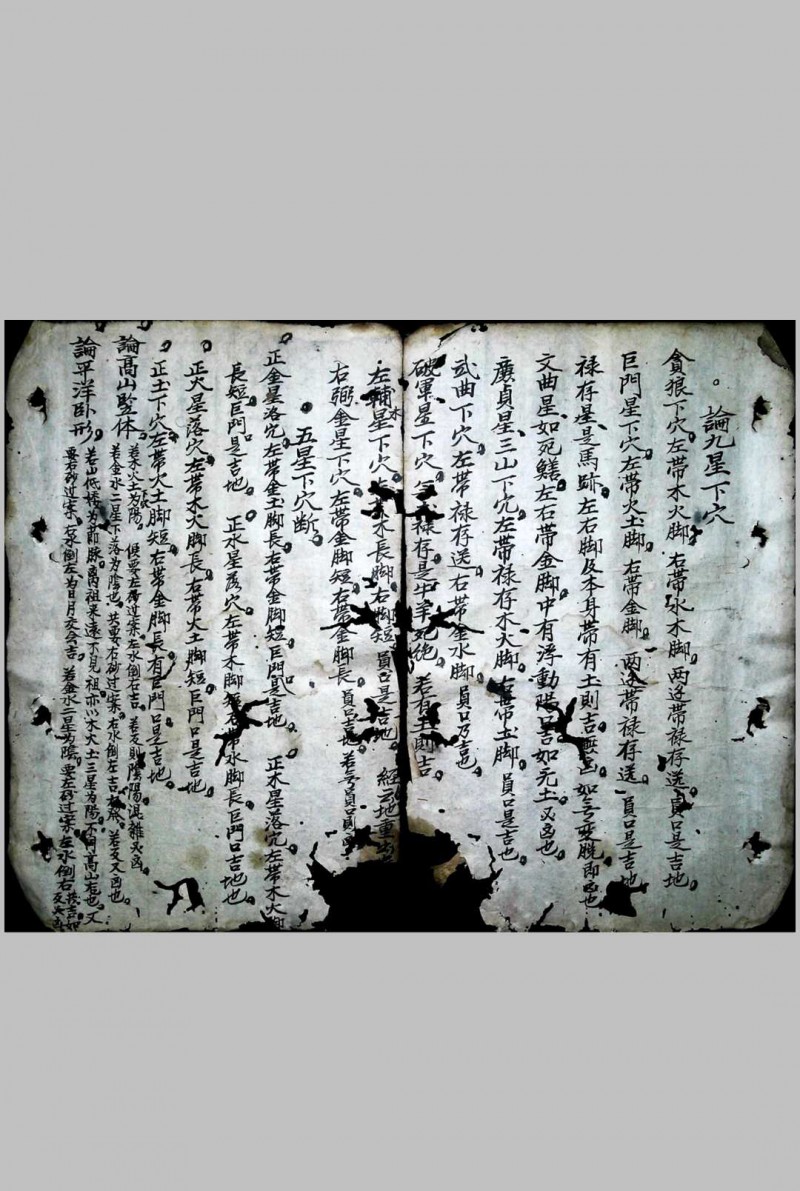 論九星下穴
貪狼下穴左帶木火脚右帶水木脚两送帶禄存送員口是吉地
巨門星下穴左帶火土脚右帶金脚两送帶禄存送員口是吉地
禄存星是馬跡左右脚及本身帶有土則吉 凶如 变脱即凶也
文曲星如死鱔左右帶金脚中有浮動陽口吉如无土又凶也
廉貞星三山下穴左帶禄存木火脚右帶土脚員口是吉也
武曲下穴左帶禄存送右帶金水脚員口乃吉也
破軍星下穴 禄存是牛羊 絶若有土則吉
左輔星下穴 木長脚右脚短員口是吉地經云地重
右弼金星下穴左帶金脚短右帶金脚長員口吉地若 員口則凶
五星下穴断
正金星落穴左帶金土脚長右帶金脚短巨門是吉地正木星落穴左帶木火脚
長短巨門是吉地正水星落穴左帶木脚短右帶水脚長巨門口吉地也
正火星落穴左帶木火脚長右帶火土脚短巨門口是吉地
正土下穴左帶火土脚短右帶金脚長有巨門口是吉地
論高山監体
若木火土為陽 要左砂过案左水倒右吉若反則陰陽混雜又凶
若金水二星下落為陰也共要右砂过案右水倒左吉 若反又凶也
論平洋卧形
若山低矮为節脉离祖来遠不見祖亦以木火土三星為陽不問高山右也又
要右砂过案右水倒左为日月交会吉若金水二星为陰要左砂过案左水倒右